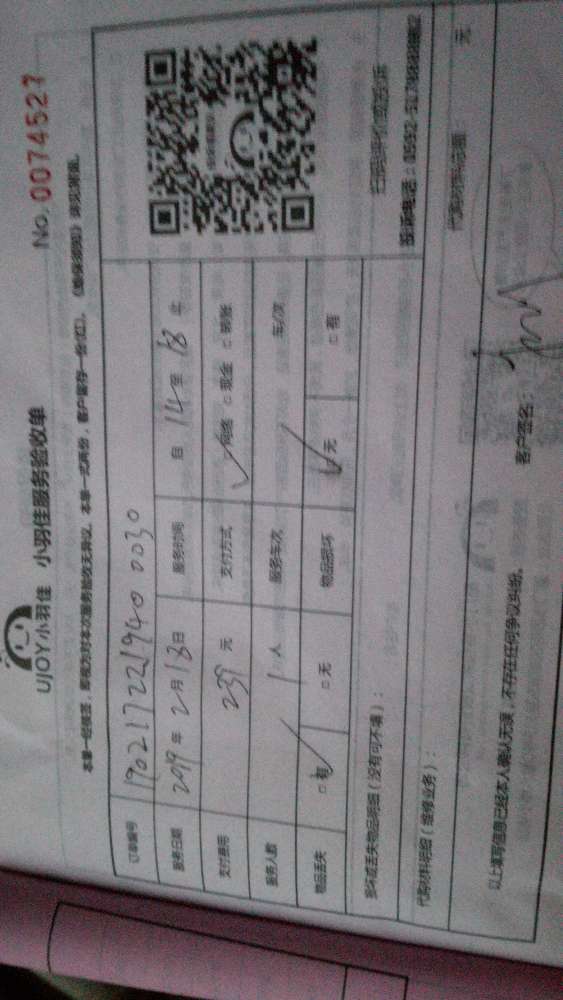 UJOY小羽佳 小羽佳服务验收单
No. 0074527
本单一经核签，即视为对本次服务验收无异议。本单一式两份，客户留存一份(红)。
订单编号 190217221940 0030
服务日期 2019 年 2 月 18 日 服务时间 自 14 至 18 止
支付费用 239 元 支付方式 ✓网络 □ 现金 □ 转账
服务人数 1 人 服务车次 车/次
物品丢失 □ 有 □ 无 物品损坏 □ 无 □ 有
损坏或丢失物品明细（没有可不填）：
扫码评价或投诉
代购材料明细（维修业务）：
元
以上填写信息已经本人确认无误，不存在任何争议纠纷。
客户签名：